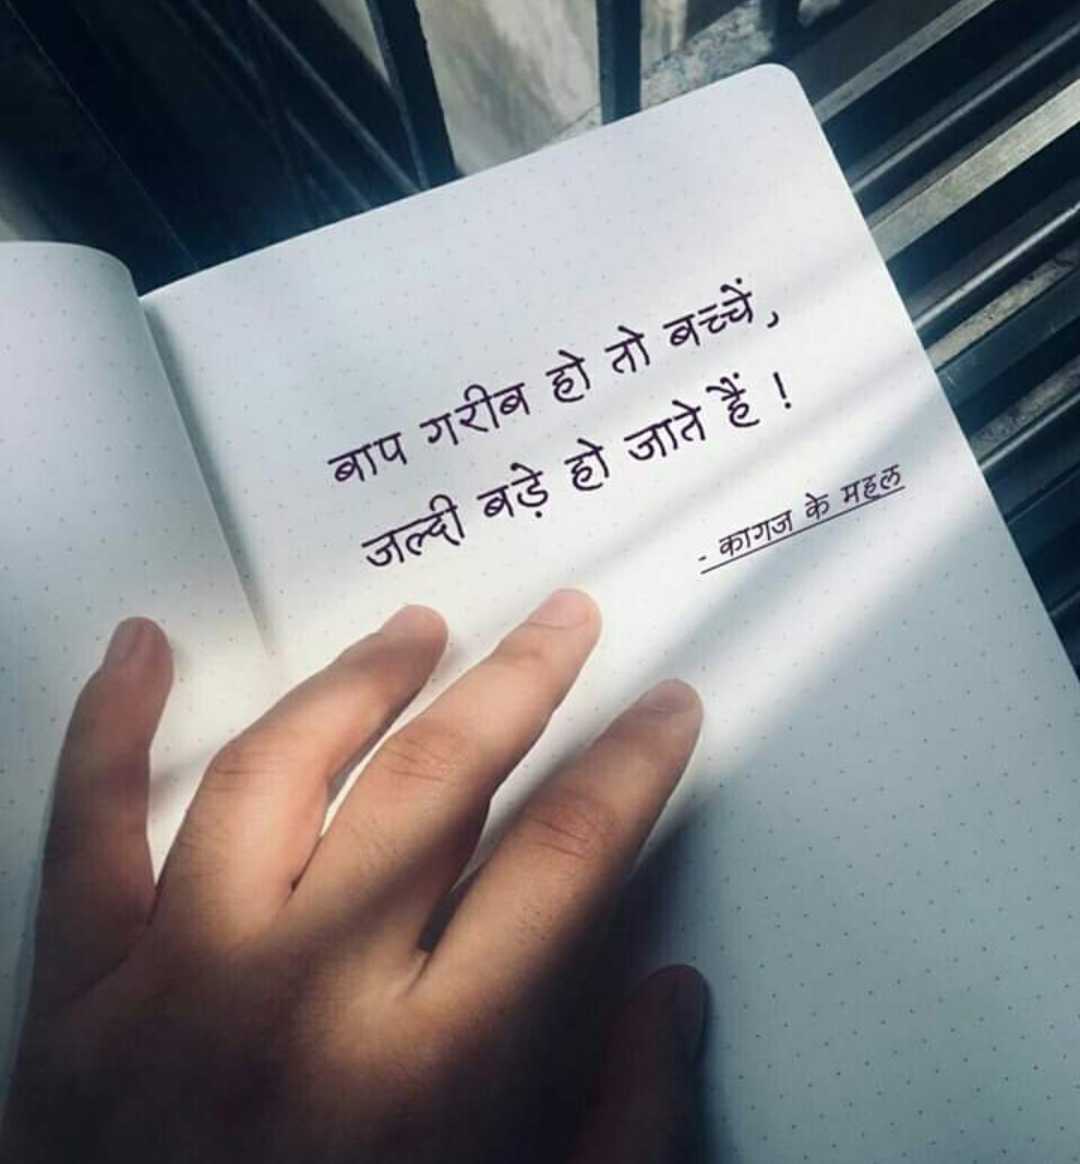 बाप गरीब हो तो बच्चें,
जल्दी बड़े हो जाते हैं !
- कागज के महल